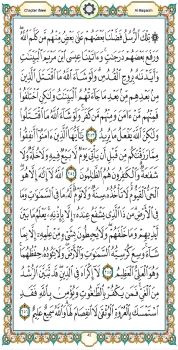 Chapter three Al Baqarah
تِلْكَ ٱلرُّسُلُ فَضَّلْنَا بَعْضَهُمْ عَلَىٰ بَعْضٍ مِّنْهُم مَّن كَلَّمَ ٱللَّهُ
وَرَفَعَ بَعْضَهُمْ دَرَجَٰتٍ وَءَاتَيْنَا عِيسَى ٱبْنَ مَرْيَمَ ٱلْبَيِّنَٰتِ
وَأَيَّدْنَٰهُ بِرُوحِ ٱلْقُدُسِ وَلَوْ شَآءَ ٱللَّهُ مَا ٱقْتَتَلَ ٱلَّذِينَ
مِنۢ بَعْدِهِم مِّنۢ بَعْدِ مَا جَآءَتْهُمُ ٱلْبَيِّنَٰتُ وَلَٰكِنِ ٱخْتَلَفُوا۟
فَمِنْهُم مَّنْ ءَامَنَ وَمِنْهُم مَّن كَفَرَ وَلَوْ شَآءَ ٱللَّهُ مَا ٱقْتَتَلُوا۟
وَلَٰكِنَّ ٱللَّهَ يَفْعَلُ مَا يُرِيدُ ٢٥٣ يَٰٓأَيُّهَا ٱلَّذِينَ ءَامَنُوٓا۟ أَنفِقُوا۟
مِمَّا رَزَقْنَٰكُم مِّن قَبْلِ أَن يَأْتِىَ يَوْمٌ لَّا بَيْعٌ فِيهِ وَلَا خُلَّةٌ وَلَا
شَفَٰعَةٌ وَٱلْكَٰفِرُونَ هُمُ ٱلظَّٰلِمُونَ ٢٥٤ ٱللَّهُ لَآ إِلَٰهَ إِلَّا هُوَ
ٱلْحَىُّ ٱلْقَيُّومُ لَا تَأْخُذُهُۥ سِنَةٌ وَلَا نَوْمٌ لَّهُۥ مَا فِى ٱلسَّمَٰوَٰتِ وَمَا
فِى ٱلْأَرْضِ مَن ذَا ٱلَّذِى يَشْفَعُ عِندَهُۥٓ إِلَّا بِإِذْنِهِۦ يَعْلَمُ مَا بَيْنَ
أَيْدِيهِمْ وَمَا خَلْفَهُمْ وَلَا يُحِيطُونَ بِشَىْءٍ مِّنْ عِلْمِهِۦٓ إِلَّا بِمَا
شَآءَ وَسِعَ كُرْسِيُّهُ ٱلسَّمَٰوَٰتِ وَٱلْأَرْضَ وَلَا يَـُٔودُهُۥ حِفْظُهُمَا
وَهُوَ ٱلْعَلِىُّ ٱلْعَظِيمُ ٢٥٥ لَآ إِكْرَاهَ فِى ٱلدِّينِ قَد تَّبَيَّنَ ٱلرُّشْدُ
مِنَ ٱلْغَىِّ فَمَن يَكْفُرْ بِٱلطَّٰغُوتِ وَيُؤْمِنۢ بِٱللَّهِ فَقَدِ
ٱسْتَمْسَكَ بِٱلْعُرْوَةِ ٱلْوُثْقَىٰ لَا ٱنفِصَامَ لَهَا وَٱللَّهُ سَمِيعٌ عَلِيمٌ ٢٥٦